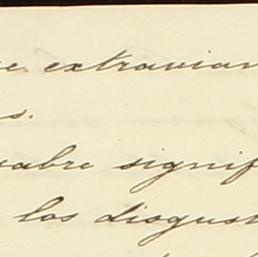 se extravian
s.
cabre signif
los disgust